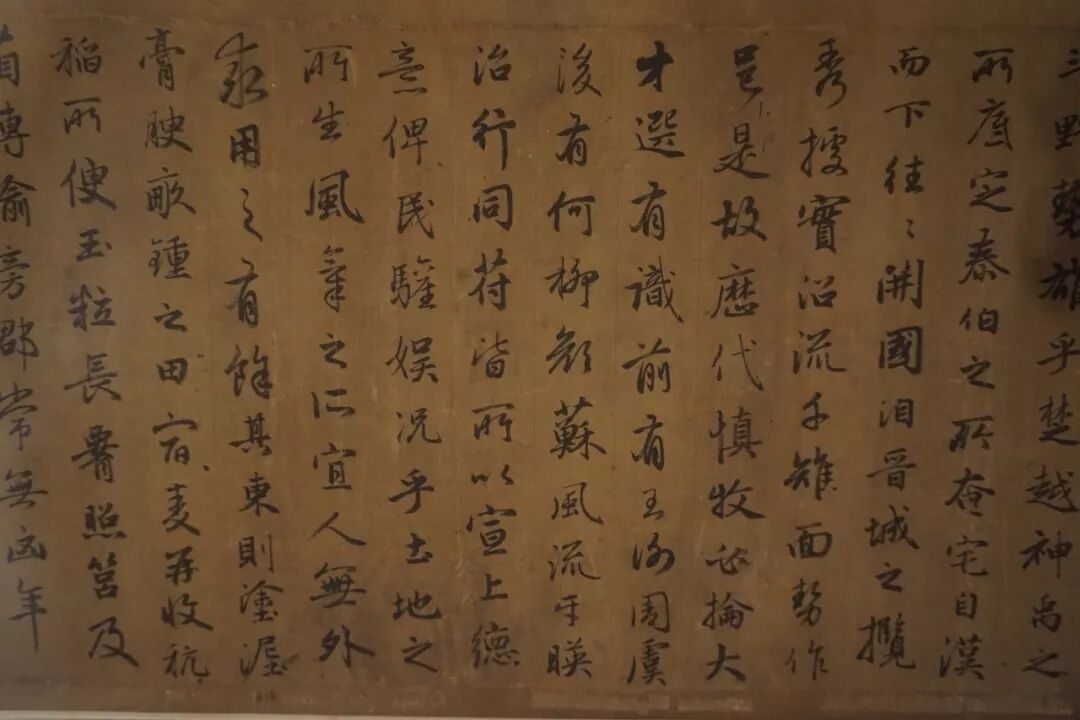 野勢雄乎楚越神禹之
所底定泰伯之所奄宅自漢
而下往往開國洎晉城之攬
秀據實沿流千雉面勢作
邑是故歷代慎牧必掄大
才選有識前有王謝周虞
後有何柳顏蘇風流互暎
治行同符皆所以宣上德
意俾民驩娛況乎土地之
所生風氣之所宜人無外
求用之有餘其東則塗泥
膏腴畝鍾之田宿麥再收秔
稻所便玉粒長馨照筥及
轉輸旁郡常無凶年